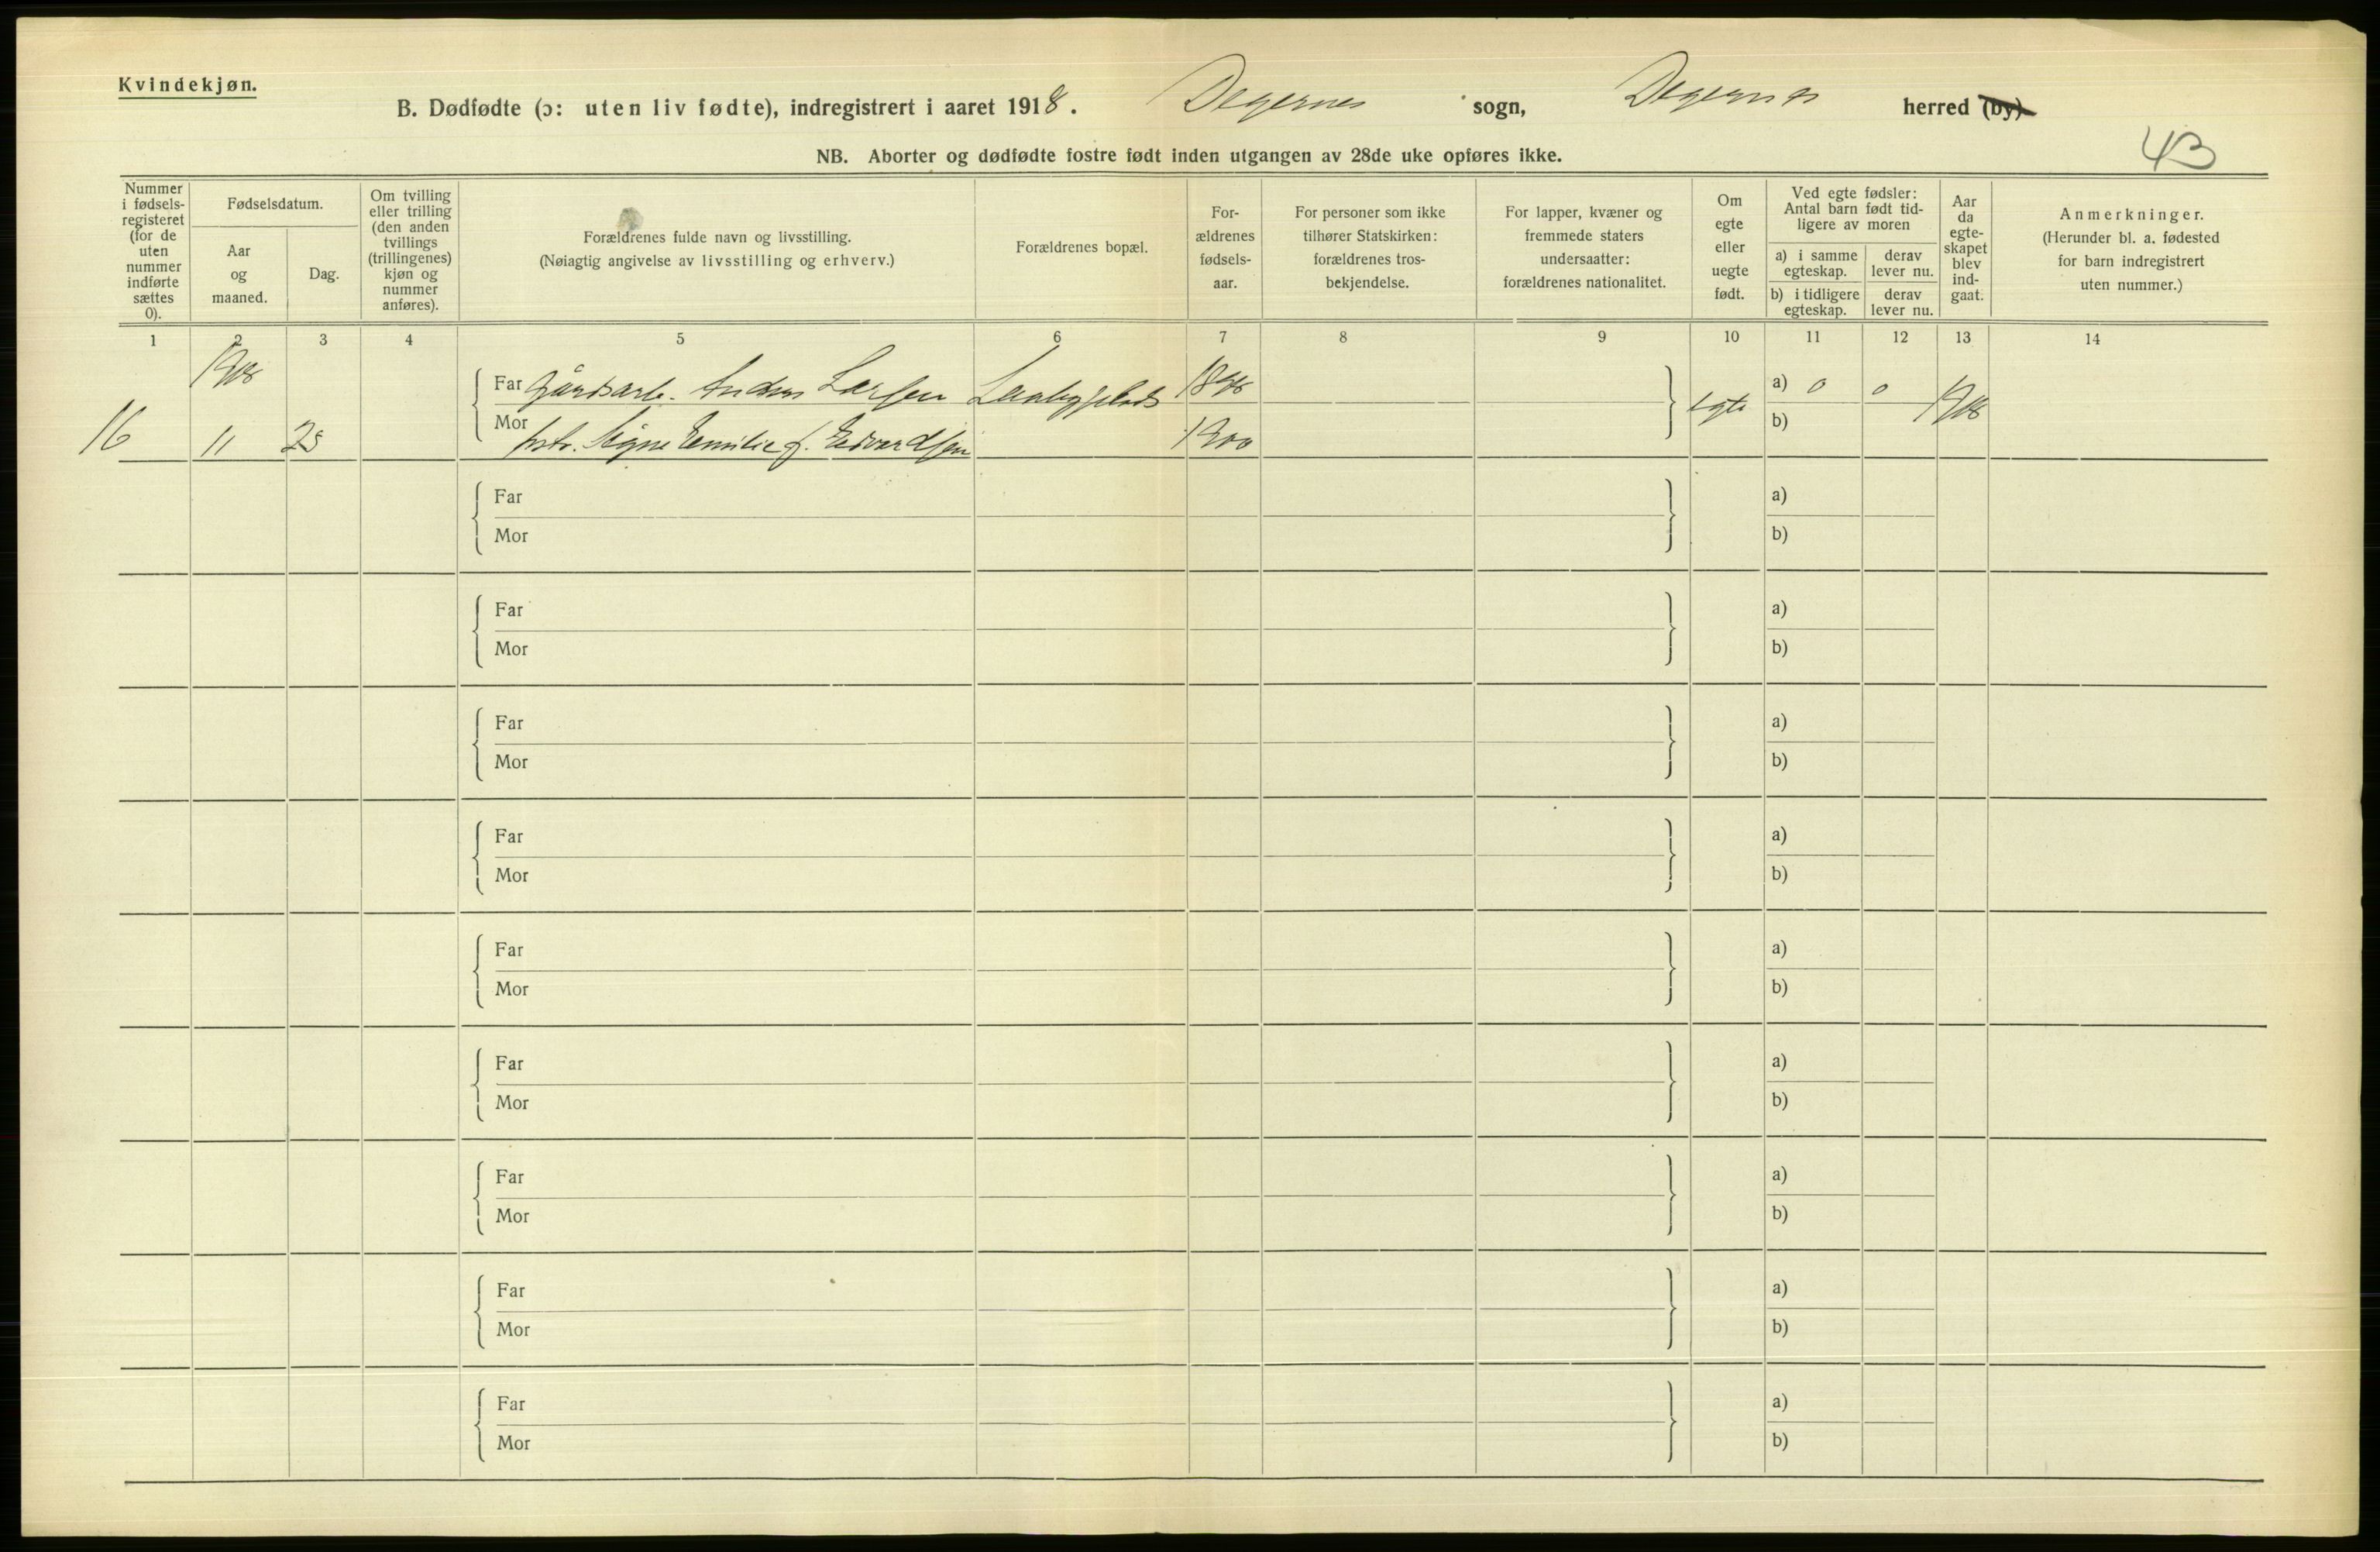 Kvindekjøn.
B. Dødfødte (ɔ: uten liv fødte), indregistrert i aaret 1918. Degernes sogn, Degernes herred (by)
43
NB. Aborter og dødfødte fostre født inden utgangen av 28de uke opføres ikke.
Nummer i fødselsregisteret (for de uten nummer indførte sættes 0).
Fødselsdatum.
Aar og maaned.
Dag.
Om tvilling eller trilling (den anden tvillings (trillingenes) kjøn og nummer anføres).
Forældrenes fulde navn og livsstilling.
(Nøiagtig angivelse av livsstilling og erhverv.)
Forældrenes bopæl.
Forældrenes fødselsaar.
For personer som ikke tilhører Statskirken: forældrenes trosbekjendelse.
For lapper, kvæner og fremmede staters undersaatter: forældrenes nationalitet.
Om egte eller uegte født.
Ved egte fødsler: Antal barn født tidligere av moren
a) i samme egteskap.
derav lever nu.
b) i tidligere egteskap.
derav lever nu.
Aar da egteskapet blev indgaat.
Anmerkninger.
(Herunder bl. a. fødested for barn indregistrert uten nummer.)
1 2 3 4 5 6 7 8 9 10 11 12 13 14
1918
Far Gårdsarb. Anders Larsen
egte a) 0 0 1918
16 11 25
Mor Signe Emilie f. Edvardsen 1900
b)
Far a)
Mor b)
Far a)
Mor b)
Far a)
Mor b)
Far a)
Mor b)
Far a)
Mor b)
Far a)
Mor b)
Far a)
Mor b)
Far a)
Mor b)
Far a)
Mor b)